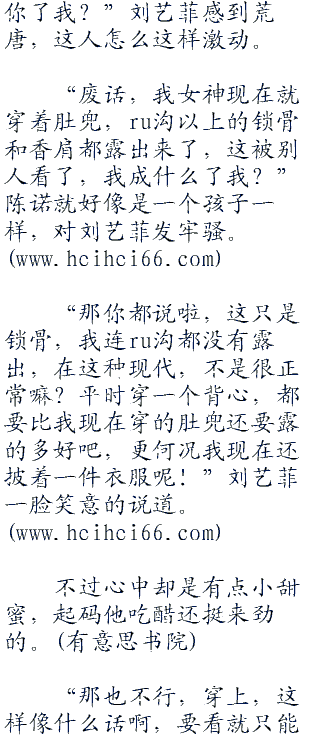 你了我？”刘艺菲感到荒
唐，这人怎么这样激动。
“废话，我女神现在就
穿着肚兜，ru沟以上的锁骨
和香肩都露出来了，这被别
人看了，我成什么了我？”
陈诺就好像是一个孩子一
样，对刘艺菲发牢骚。
(www.hcihci66.com)
“那你都说啦，这只是
锁骨，我连ru沟都没有露
出，在这种现代，不是很正
常嘛？平时穿一个背心，都
要比我现在穿的肚兜还要露
的多好吧，更何况我现在还
披着一件衣服呢！”刘艺菲
一脸笑意的说道。
(www.hcihci66.com)
不过心中却是有点小甜
蜜，起码他吃醋还挺来劲
的。(有意思书院)
“那也不行，穿上，这
样像什么话啊，要看就只能